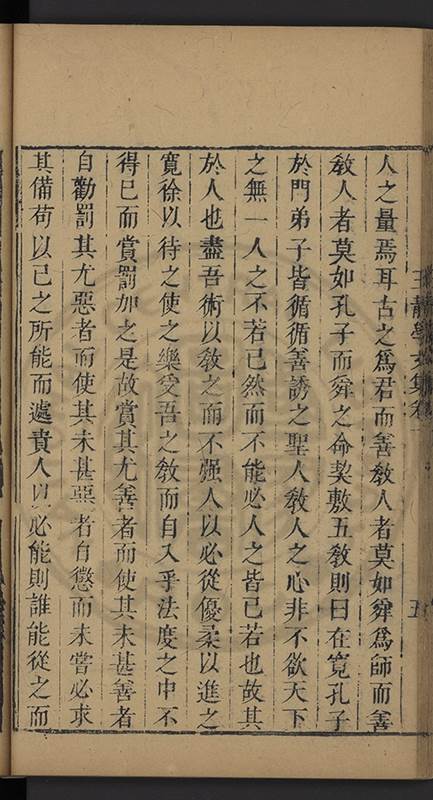 人之量焉耳古之爲君而善敎人者莫如舜爲師而善
敎人者莫如孔子而舜之命契敷五敎則曰在寬孔子
於門弟子皆循循善誘之聖人敎人之心非不欲天下
之無一人之不若已然而不能必人之皆已若也故其
於人也盡吾術以敎之而不强人以必從優柔以進之
寬徐以待之使之樂受吾之敎而自入乎法度之中不
得已而賞罰加之是故賞其尤善者而使其未甚善者
自勸罰其尤惡者而使其未甚惡者自懲而未嘗必求
其備苟以已之所能而遽責人以必能則誰能從之而
王靜學文集卷
五